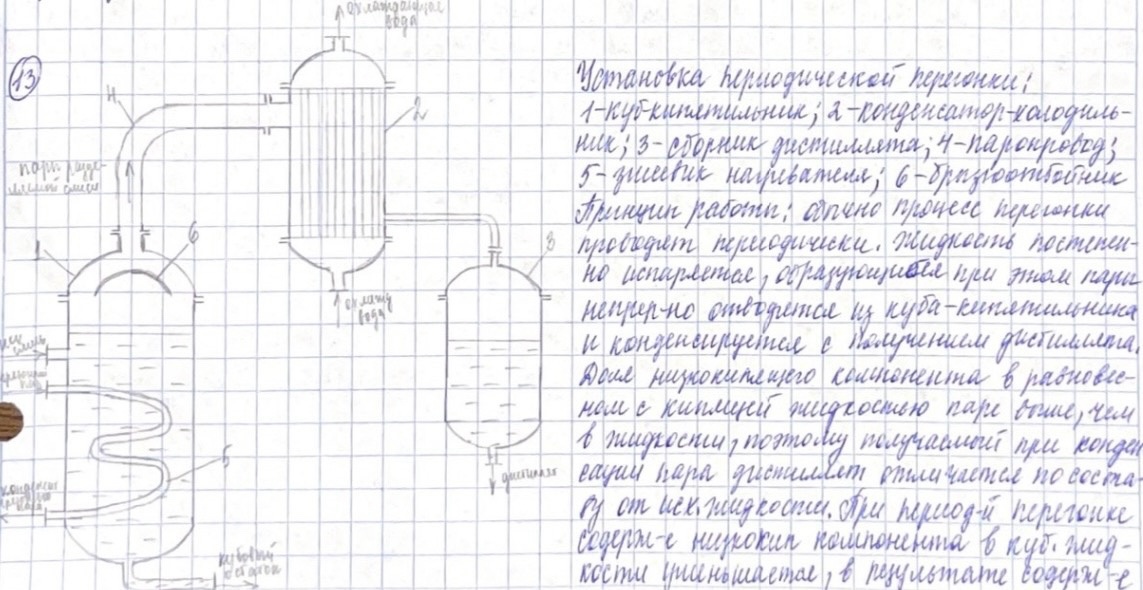 охлаждающая
вода
13
4
2
пары разде-
ляемой смеси
1
6
3
охлажд
вода
исх
смесь
греющий
пар
5
конденсат
греющего
пара
дистиллят
кубовый
остаток
Установка периодической перегонки:
1-куб-кипятильник; 2-конденсатор-холодиль-
ник; 3-сборник дистиллята; 4-паропровод;
5-змеевик нагревателя; 6-брызгоотбойник
Принцип работы: обычно процесс перегонки
проводят периодически. Жидкость постепен-
но испаряется, образующиеся при этом пары
непрер-но отводятся из куба-кипятильника
и конденсируется с получением дистиллята.
Доля низкокипящего компонента в равновес-
ном с кипящей жидкостью паре выше, чем
в жидкости, поэтому получаемый при конден
сации пара дистиллят отличается по соста-
ву от исх. жидкости. При период-й перегонке
содерж-е низкокип компонента в куб. жид-
кости уменьшается, в результате содерж-е